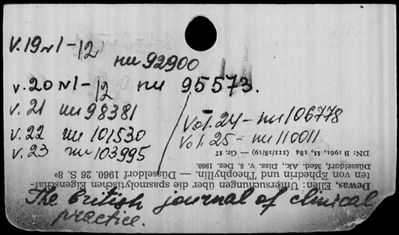 v.19 N1-12
nu 92900
v.20 N1-12 nu 95573.
v.21 nu 98381
v.22 nu 101530
v.23 nu 103995
Vol.24- nu 106778
Vol.25- nu 110011
The British journal of clinical
practice.
Dewas, Ellen: Untersuchungen über die spasmolytischen Eigenschaf-
ten von Ephedrin und Theophyllin. — Düsseldorf 1960. 26 S. 8°
Düsseldorf, Med. Ak., Diss. v. 8. Dez. 1960.
DN: B 1961, 55, 184 (211/18/9) — Gr. 17